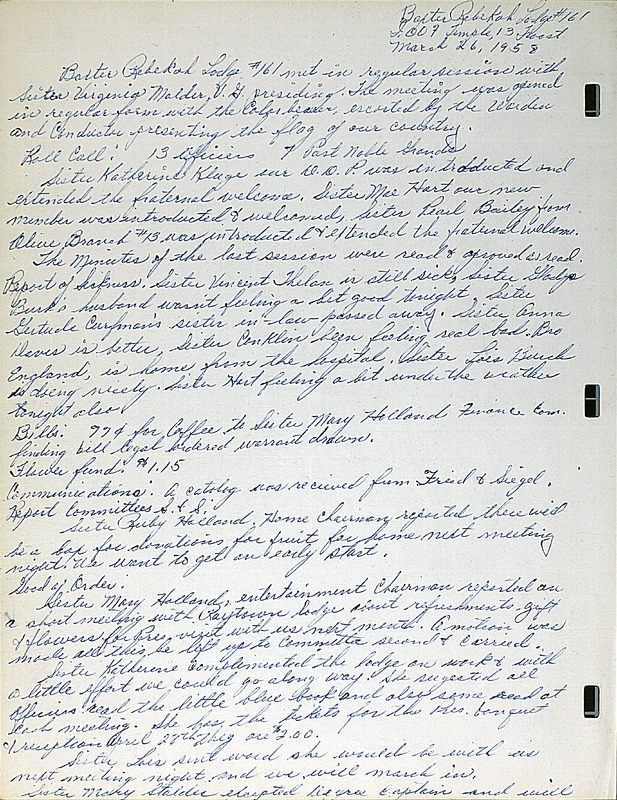 Baxter Rebekah Lodge #161
I.O.O.F Temple 13 Host
March 26, 1958
Baxter Rebekah Lodge #161 met in regular session with
Sister Virginia Malder, V.G. presiding. The meeting was opened
in regular form with the Color bearer, escorted by the Warden
and Conductor presenting the flag of our country.
Roll Call: 13 Officers 7 Past Noble Grands
Sister Katherine Kluge our D.D.P. was introducted and
extended the fraternal welcome. Sister Mae Hart our new
member was introduced & welcomed, Sister Pearl Bailey from
Olive Branch #13 was introduced & extended the fraternal welcome.
The Minutes of the last session were read & aproved as read.
Report of Sickness. Sister Vincent Thelan is still sick, Sister Gladys
Burk's husband wasn't feeling a bit good tonight, Sister
Gertrude Curfman's sister in-law passed away. Sister Anna
Davis is better, Sister Conklin been feeling real bad. Bro
England, is home from the hospital, Sister Lois
is doing nicely. Sister Hart feeling a bit under the weather
tonight also
Bills: 77¢ for Coffee to Sister Mary Holland Finance Com.
finding bill legal ordered warrant drawn.
Flower fund: $1.15
Communications: A catalog was recieved from Fried & Siegel.
Report Committees S. & S.
Sister Ruby Holland, Home Chairman, reported there will
be a box for donations for fruit for home next meeting
night. We want to get an early start.
Good of Order:
Sister Mary Holland, entertainment Chairman reported on
a short meeting with Raytown Lodge about refreshments, gift
& flowers for Pres. visit with us next month. A motion was
made all this be left up to Committee second & Carried.
Sister Katherine complemented the lodge on work & with
a little effort we could go along way. She sugested all
officers read the little blue book and also some read at
each meeting. She has the tickets for the Pres. banquet
& reception April 27th they are $2.00.
Sister Lois sent word she would be with us
next meeting night and we will march in.
Sister Mary Stalder elected Degree Captain and will